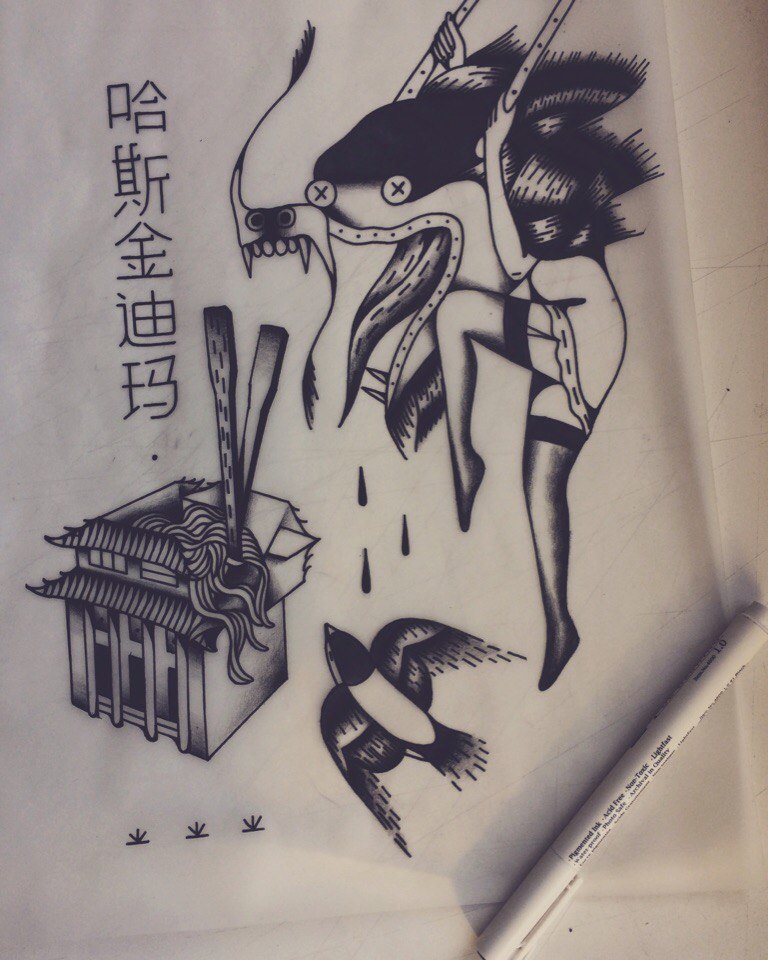 哈斯金迪玛
1.0
·Pigmented Ink ·Acid Free ·Non-Toxic ·Lightfast
·Waterproof ·Photo Safe ·Archival in Quality